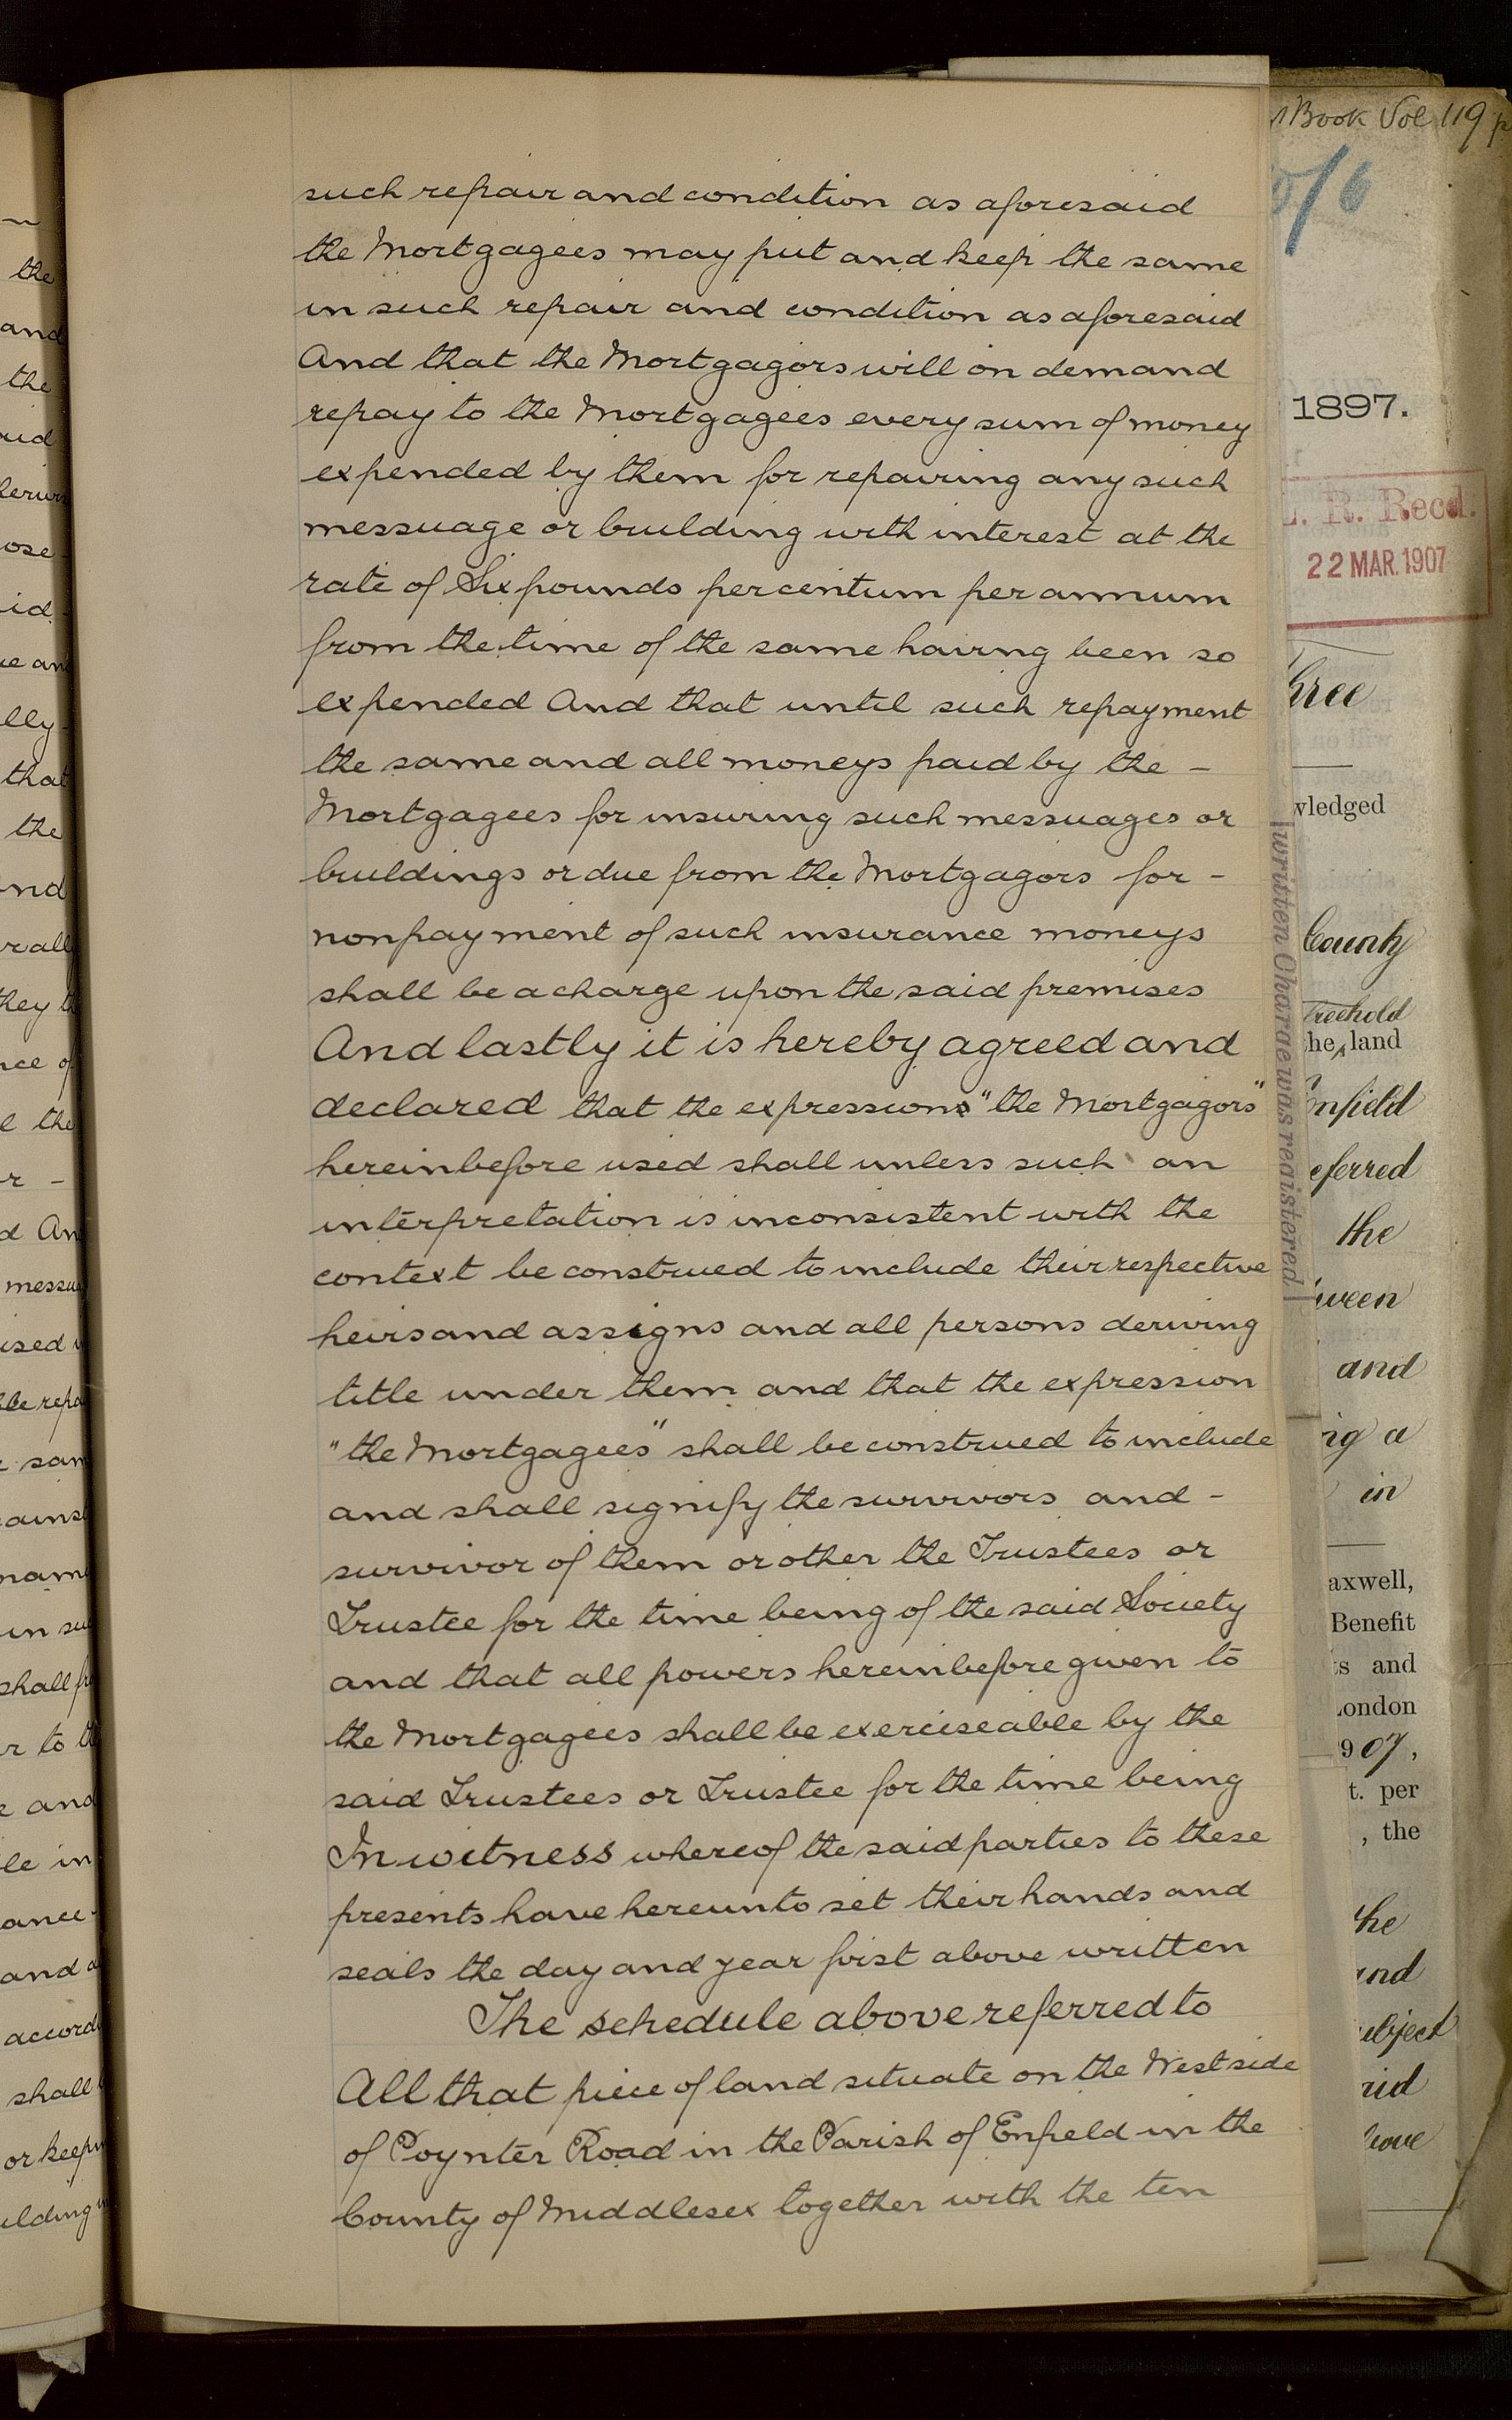 such repair and condition as aforesaid
the Mortgagees may put and keep the same
in such repair and condition as aforesaid
And that the Mortgagors will on demand
repay to the Mortgagees every sum of money
expended by them for repairing any such
messuage or building with interest at the
rate of Six pounds per centum per annum
from the time of the same having been so
expended And that until such repayment
the same and all moneys paid by the -
Mortgagees for insuring such messuages or
buildings or due from the Mortgagors for -
nonpayment of such insurance moneys
shall be a charge upon the said premises
And lastly it is hereby agreed and
declared that the expressions "the Mortgagors"
hereinbefore used shall unless such an
interpretation is inconsistent with the
context be construed to include their respective
heirs and assigns and all persons deriving
title under them and that the expression
"the Mortgagees" shall be construed to include
and shall signify the survivors and -
survivor of them or other the Trustees or
Trustee for the time being of the said Society
and that all powers hereinbefore given to
the Mortgagees shall be exerciseable by the
said Trustees or Trustee for the time being
In witness whereof the said parties to these
presents have hereunto set their hands and
seals the day and year first above written
The schedule above referred to
All that piece of land situate on the West side
of Poynter Road in the Parish of Enfield in the
County of Middlesex together with the ten
Book Vol 119
1897.
L. R. Recd.
22 MAR. 1907
hree
wledged
County
Freehold
he land
Enfield
eferred
the
ween
and
ng a
in
axwell,
Benefit
ts and
London
907,
t. per
, the
the
and
ubject
aid
written Charge was registered
the
and
the
lly-
that
the
rally
messu
ainst
shall
and